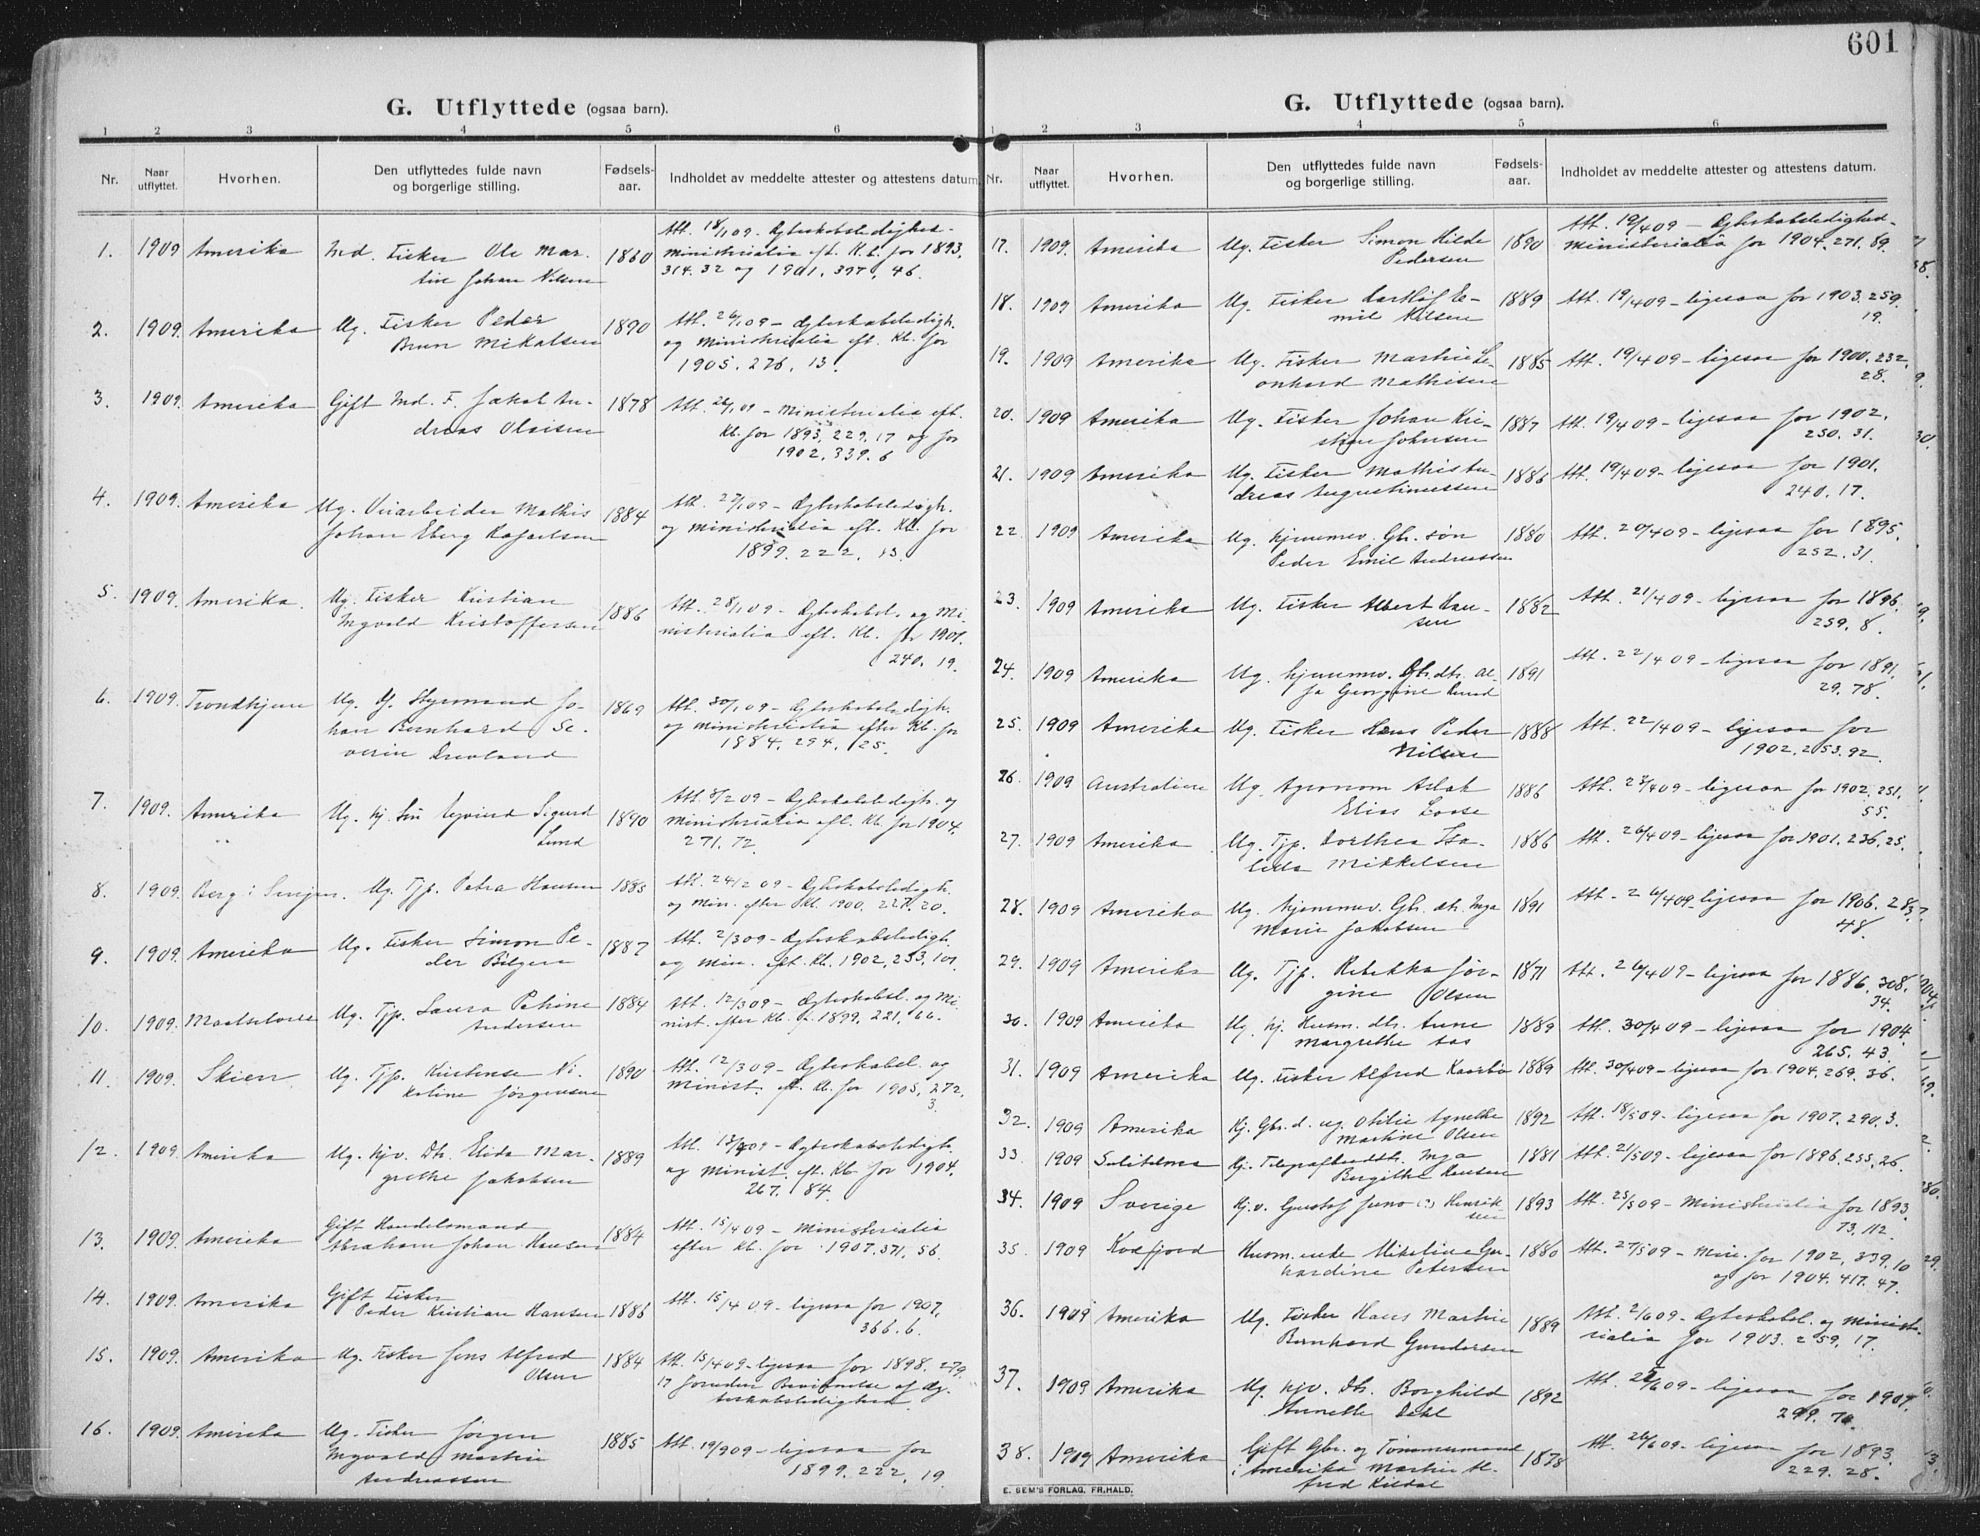 601
G. Utflyttede (ogsaa barn).
1 2 3 4 5 6
Nr. Naar utflyttet. Hvorhen. Den utflyttedes fulde navn og borgerlige stilling. Fødsels-aar. Indholdet av meddelte attester og attestens datum.
1. 1909 Amerika Fisker Ole Mar- 1860 Att. 18/1 09 - Ægteskabsledighed-
tin Johan Nilsen ministerialia eft. K.b. for 1893,
314.32 og 1901, 46.
2. 1909. Amerika Ug. Fisker Peder 1890 Att. 26/1 09 - Ægteskabsledigh.
Brun Mikalsen og ministerialia eft. Kb. for
1905. 276, 13.
3. 1909. Amerika Gift Ind. F. Jakob An- 1878 Att. 26/1 09 - Ministerialia eft.
dreas Olaisen Kb. for 1893, 229.17 og for
1902. 339. 6
4. 1909. Amerika Ug. Mathis 1884 Att. 27/1 09 - Ægteskabsledigh.
Johan Eberg Rafaelsen og ministerialia eft. Kb. for
1899. 222, 13.
5. 1909. Amerika. Ug. Fisker Kristian 1886 Att. 28/1 09 - Ægteskabsl. og Mi-
Ingvald Kristoffersen nisterialia eft. Kb. for 1901.
240. 19.
6. 1909. Trondhjem Ug. Styrmand Jo- 1869 Att. 30/1 09 - Ægteskabsledigh.
han Bernhard Se- og ministerialia efter Kb. for
verin 1884, 294, 25.
7. 1909. Amerika Ug. kj. Søn Eyvind Sigurd 1890 Att. 8/2 09 - Ægteskabsledigh. og
Lund Ministerialia eft. Kb. for 1904
271, 72.
8. 1909. Berg i Senjen. Ug. Tjp. Petra Hansen 1885 Att. 24/2 09 - Ægteskabsledigh.
og Min. efter Kb. 1900. 227. 20.
9. 1909. Amerika Ug. Fisker Simon Pe- 1887 Att. 2/3 09 - Ægteskabsledigh.
der og Min. eft. Kb. 1902, 253, 101.
10. 1909. Maalselven Ug. Tjp. Laura Petrine 1884 Att. 12/3 09 - Ægteskabsl. og Mi-
Pedersen nist. efter Kb. f. 1899, 221, 66.
11. 1909. Skien Ug. Tjp. Kristense Ni- 1890 Att. 12/3 09 - Ægteskabsl. og
koline Jørgensen Minist. eft. Kb. for 1905, 272,
3.
12. 1909. Amerika Ug. hjv. Dtr. Elida Mar- 1889 Att. 13/4 09 - Ægteskabsledigh.
grethe Jakobsen og Minist. eft. Kb. for 1904.
267. 84.
13. 1909. Amerika Gift Handelsmand 1884 Att. 15/4 09 - Ministerialia
Abraham Johan Hansen efter Kb. for 1907. 371, 56.
14. 1909. Amerika Gift Fisker 1886 Att. 15/4 09 - ligesaa for 1907.
Peder Kristian Hansen 366. 6.
15. 1909. Amerika Ug. Fisker Jens Alfred 1884 Att. 15/4 09 - ligesaa for 1898. 279.
Olsen 17 foruden Bevidnelse af Æg-
teskabsledighed.
16. 1909. Amerika Ug. Fisker Jørgen 1885 Att. 19/4 09 - ligesaa for
Ingvald Martin 1899. 222, 19.
Andreassen
G. Utflyttede (ogsaa barn).
1 2 3 4 5 6
Nr. Naar utflyttet. Hvorhen. Den utflyttedes fulde navn og borgerlige stilling. Fødsels-aar. Indholdet av meddelte attester og attestens datum.
17. 1909. Amerika Ug. Fisker Simon Kilde 1890 Att. 19/4 09 - Ægteskabsledighed-
Pedersen Ministerialia for 1904. 271, 89.
18. 1909 Amerika Ug. Fisker E- 1889 Att. 19/4 09 - ligesaa for 1903. 259.
mil Nilsen 19.
19. 1909 Amerika Ug. Fisker Martin Le- 1885 Att. 19/4 09 - ligesaa for 1900, 232,
onhard Mathisen 28.
20. 1909 Amerika Ug. Fisker Johan Kri- 1887 Att. 19/4 09 - ligesaa for 1902.
stian Johnsen 250. 31.
21. 1909 Amerika Ug. Fisker Mathis An- 1886 Att. 19/4 09 - ligesaa for 1901.
dreas Augustinussen 240. 17.
22. 1909 Amerika Ug. hjemmev. Gbr. søn 1880 Att. 20/4 09 - ligesaa for 1895.
Peder Emil Andreassen 252. 31.
23. 1909 Amerika Ug. Fisker Albert Han- 1882 Att. 21/4 09 - ligesaa for 1896.
sen 259. 8.
24. 1909 Amerika Ug. hjemmev. Gbr. dtr. Al- 1891 Att. 22/4 09 - ligesaa for 1891.
fa Georgine Lund 29. 78.
25. 1909 Amerika Ug. Fisker Hans Peder 1888 Att. 22/4 09 - ligesaa for
Nilsen 1902. 253. 92.
26. 1909 Australien Ug. Agronom Aslak 1886 Att. 23/4 09 - ligesaa for 1902. 251,
Elias 55.
27. 1909 Amerika Ug. Tjp. Dorthea 1886 Att. 26/4 09 - ligesaa for 1901, 236, 25.
Mikkelsen
28. 1909 Amerika Ug. hjemmev. Gbr. dtr. Inga 1891 Att. 26/4 09 - ligesaa for 1906. 283,
Marie Jakobsen 48.
29. 1909 Amerika Ug. Tjp. Rebekka Jør- 1871 Att. 26/4 09 - ligesaa for 1886, 308.
gine Olsen 34.
30. 1909 Amerika Ug. hj. Husm. dtr. Anne 1889 Att. 30/4 09 - ligesaa for 1904.
Margrethe 265. 43.
31. 1909 Amerika Ug. Fisker Alfred Kaarbø 1889 Att. 30/4 09 - ligesaa for 1904. 269. 36.
32. 1909 Amerika Hj. Gbr. d. ug. Otilie Agnethe 1892 Att. 18/5 09 - ligesaa for 1907. 290. 3.
Martine Olsen
33. 1909 Sulitelma Hj. Inga 1881 Att. 21/5 09 - ligesaa for 1896. 255, 26.
Bergithe Hansen
34. 1909 Sverige Hj. v. Gustaf Juno (?) Henrik- 1893 Att. 25/5 09 - Ministerialia for 1893.
sen 73, 112.
35. 1909 Kvæfjord Husm. enke Mikaline Ger- 1880 Att. 27/5 09 - Min. for 1902, 339. 10
hardine Petersen og for 1904. 417. 47.
36. 1909 Amerika Ug. Fisker Hans Martin 1889 Att. 2/6 09 - Ægteskabsl. og Ministe-
Bernhard Gundersen rialia for 1903. 259, 17.
37. 1909 Amerika Ug. hjv. Dtr. Borghild 1892 Att. /6 09 - ligesaa for 1907.
Annette Dahl 299. 70.
38. 1909 Amerika Gift Gbr. og Tømmermand 1878 Att. 26/6 09 - ligesaa for 1893.
i Amerika Martin Al- 229. 28.
fred Kildal
E. SEM'S FORLAG, FR.HALD.